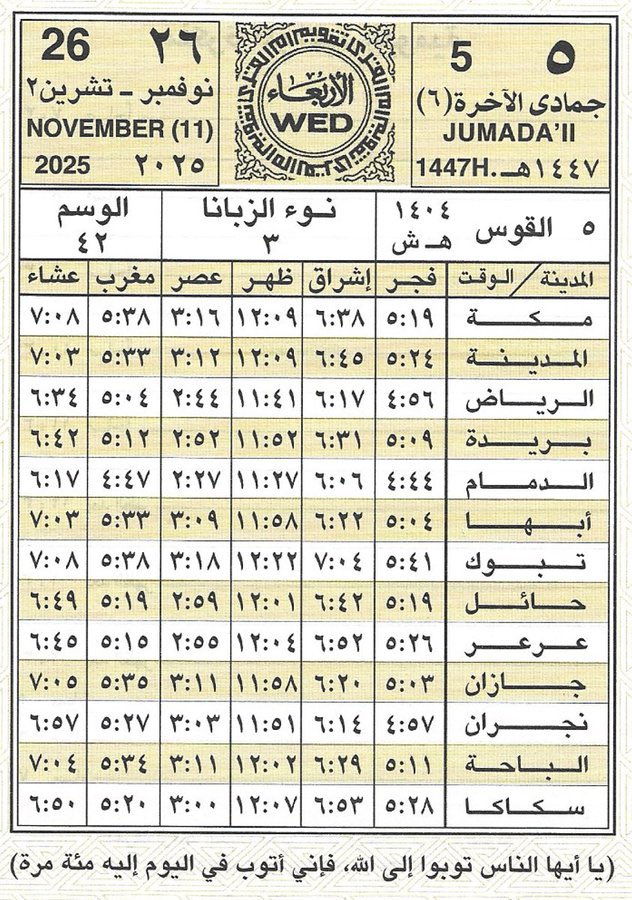 ٥ 5
جمادى الآخرة (٦)
JUMADA'II
1447H. ١٤٤٧هـ
الأربعاء
WED
٢٦ 26
نوفمبر - تشرين٢
NOVEMBER (11)
2025 ٢٠٢٥
٥ القوس ١٤٠٤ هـ ش
نوء الزبانا
٣
الوسم
٤٢
المدينة / الوقت فجر إشراق ظهر عصر مغرب عشاء
مكة ٥:١٩ ٦:٣٨ ١٢:٠٩ ٣:١٦ ٥:٣٨ ٧:٠٨
المدينة ٥:٢٤ ٦:٤٥ ١٢:٠٩ ٣:١٢ ٥:٣٣ ٧:٠٣
الرياض ٤:٥٦ ٦:١٧ ١١:٤١ ٢:٤٤ ٥:٠٤ ٦:٣٤
بريدة ٥:٠٩ ٦:٣١ ١١:٥٢ ٢:٥٢ ٥:١٢ ٦:٤٢
الدمام ٤:٤٤ ٦:٠٦ ١١:٢٧ ٢:٢٧ ٤:٤٧ ٦:١٧
أبها ٥:٠٤ ٦:٢٢ ١١:٥٨ ٣:٠٩ ٥:٣٣ ٧:٠٣
تبوك ٥:٤١ ٧:٠٤ ١٢:٢٢ ٣:١٨ ٥:٣٨ ٧:٠٨
حائل ٥:١٩ ٦:٤٢ ١٢:٠١ ٢:٥٩ ٥:١٩ ٦:٤٩
عرعر ٥:٢٦ ٦:٥٢ ١٢:٠٤ ٢:٥٥ ٥:١٥ ٦:٤٥
جازان ٥:٠٣ ٦:٢٠ ١١:٥٨ ٣:١١ ٥:٣٥ ٧:٠٥
نجران ٤:٥٧ ٦:١٤ ١١:٥١ ٣:٠٣ ٥:٢٧ ٦:٥٧
الباحة ٥:١١ ٦:٢٩ ١٢:٠٢ ٣:١١ ٥:٣٤ ٧:٠٤
سكاكا ٥:٢٨ ٦:٥٣ ١٢:٠٧ ٣:٠٠ ٥:٢٠ ٦:٥٠
(يا أيها الناس توبوا إلى الله، فإني أتوب في اليوم إليه مئة مرة)